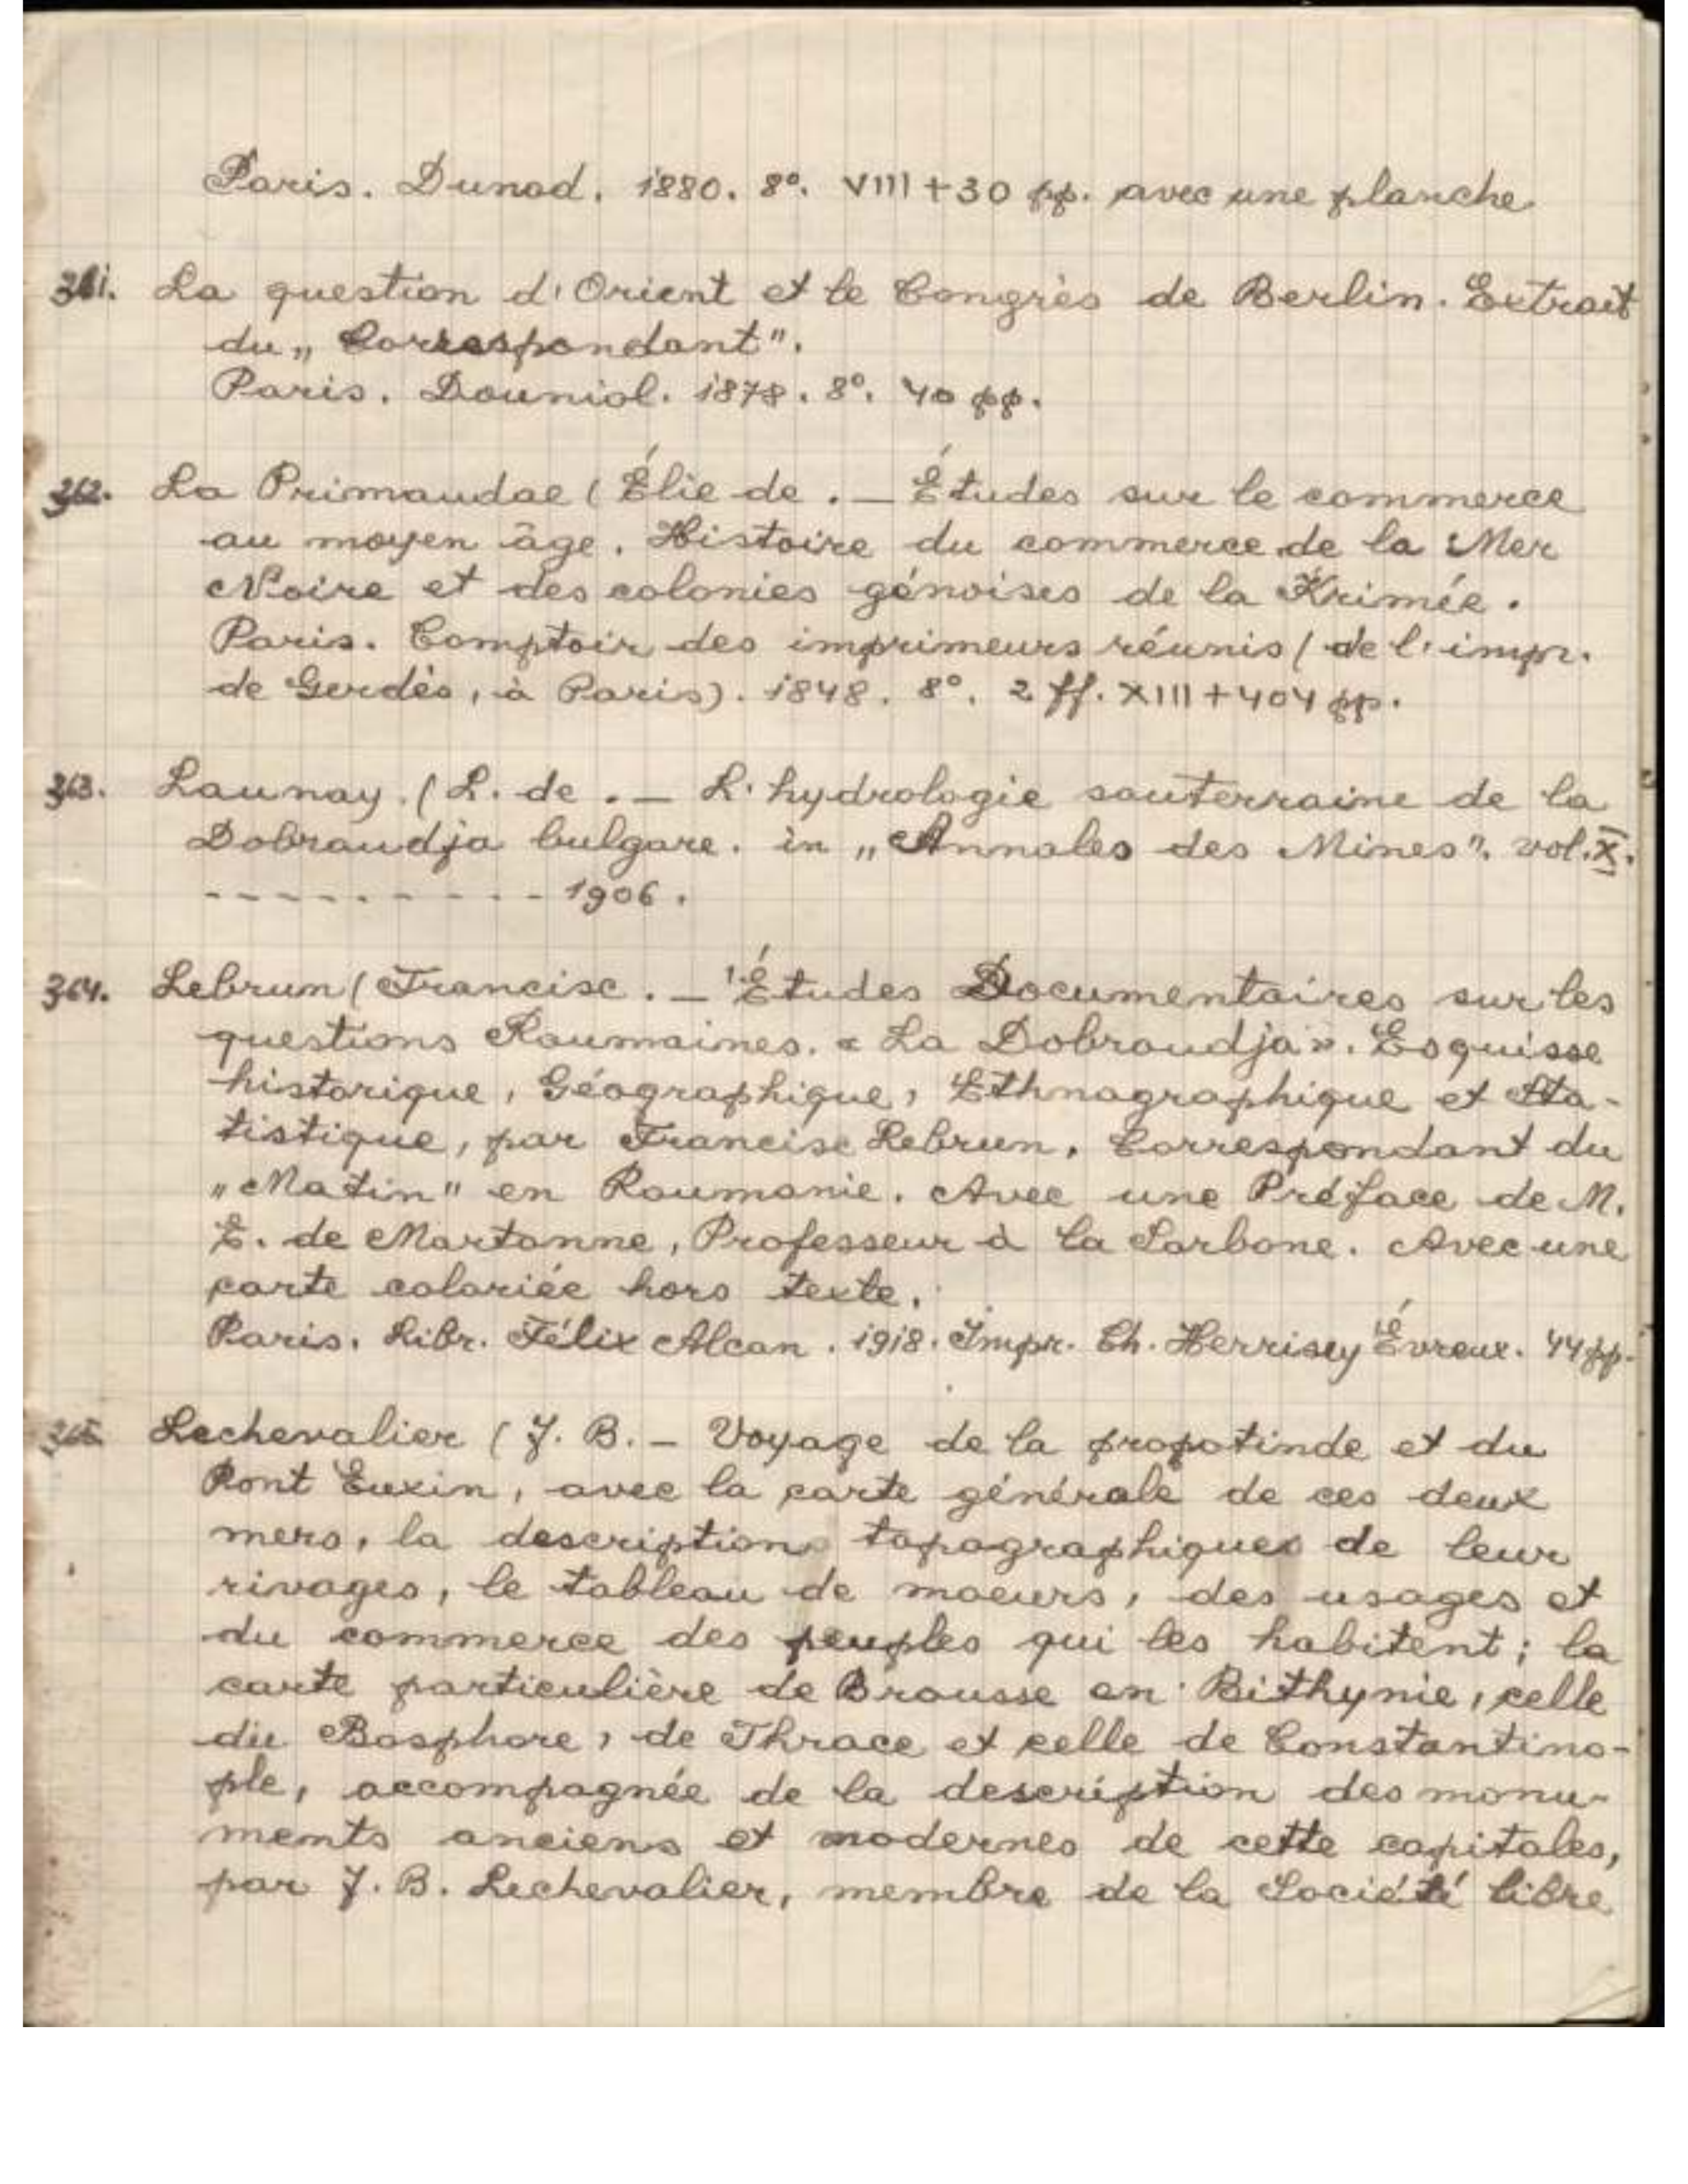 Paris. Dunod. 1880. 8°. VIII + 30 pp. avec une planche
361. La question d'Orient et le Congrès de Berlin. Extrait
du „Correspondant".
Paris. Douniol. 1878. 8°. 40 pp.
362. La Primaudae (Élie de . — Études sur le commerce
au moyen âge. Histoire du commerce de la Mer
Noire et des colonies génoises de la Krimée.
Paris. Comptoir des imprimeurs réunis (de l'impr.
de Gerdès, à Paris). 1848. 8°. 2 ff. XIII + 404 pp.
363. Launay. (L. de . — L'hydrologie souterraine de la
Dobroudja bulgare. in „Annales des Mines". vol. X.
- - - - - - - - - - 1906.
364. Lebrun (Francisc . — Études Documentaires sur les
questions Roumaines. « La Dobroudja ». Esquisse
historique, Géographique, Ethnographique et Sta-
tistique, par Francisc Lebrun, Correspondant du
„Matin" en Roumanie. Avec une Préface de M.
E. de Martonne, Professeur à la Sorbone. Avec une
carte coloriée hors texte.
Paris. Libr. Félix Alcan. 1918. Impr. Ch. Herrisey Évreux. 44 pp.
365. Lechevalier (J. B. — Voyage de la propotinde et du
Pont Euxin, avec la carte générale de ces deux
mers, la description topographiques de leur
rivages, le tableau de moeurs, des usages et
du commerce des peuples qui les habitent; la
carte particulière de Brousse en Bithynie, celle
du Bosphore, de Thrace et celle de Constantino-
ple, accompagnée de la description des monu-
ments anciens et modernes de cette capitales,
par J. B. Lechevalier, membre de la Société libre